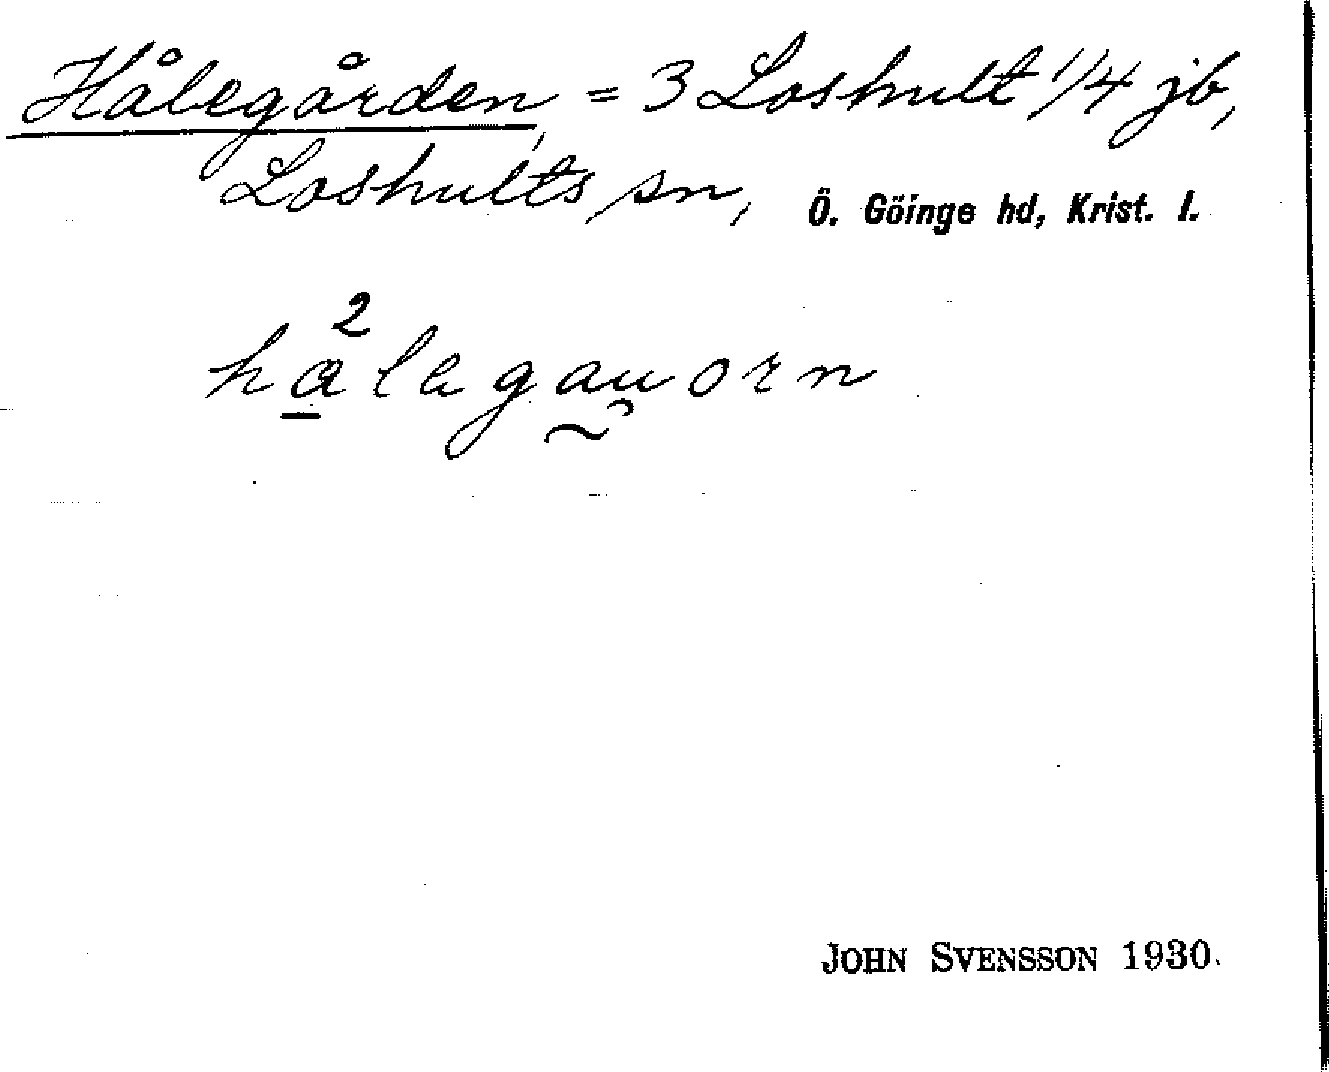 Hålegården, = 3 Loshult 1/4 jb,
Loshults sn, Ö. Göinge hd, Krist. l.
2
hålegauorn
JOHN SVENSSON 1930.